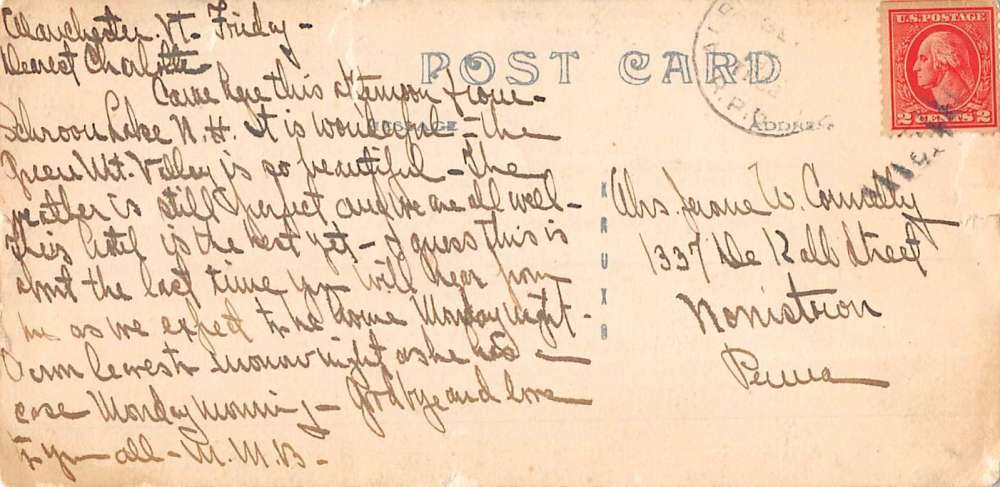 Manchester. Vt. Friday -
Dearest Charlotte
Came here this afternoon from -
Schroon Lake N. H. It is wonderful - the
Green Mt. Valley is so beautiful - The
weather is still perfect and we are all well -
This hotel is the best yet - I guess this is
about the last time you will hear from
me as we expect to be home Monday night -
leaves night as he has a
case Monday morning - Good bye and love
to you all - M. M. B -
POST CARD
MESSAGE
ADDRESS
KRUXO
U.S. POSTAGE
2 CENTS 2
R.P.O.
Mrs. Jerome W. Connolly
1337 De Kalb Street
Norristown
Penna